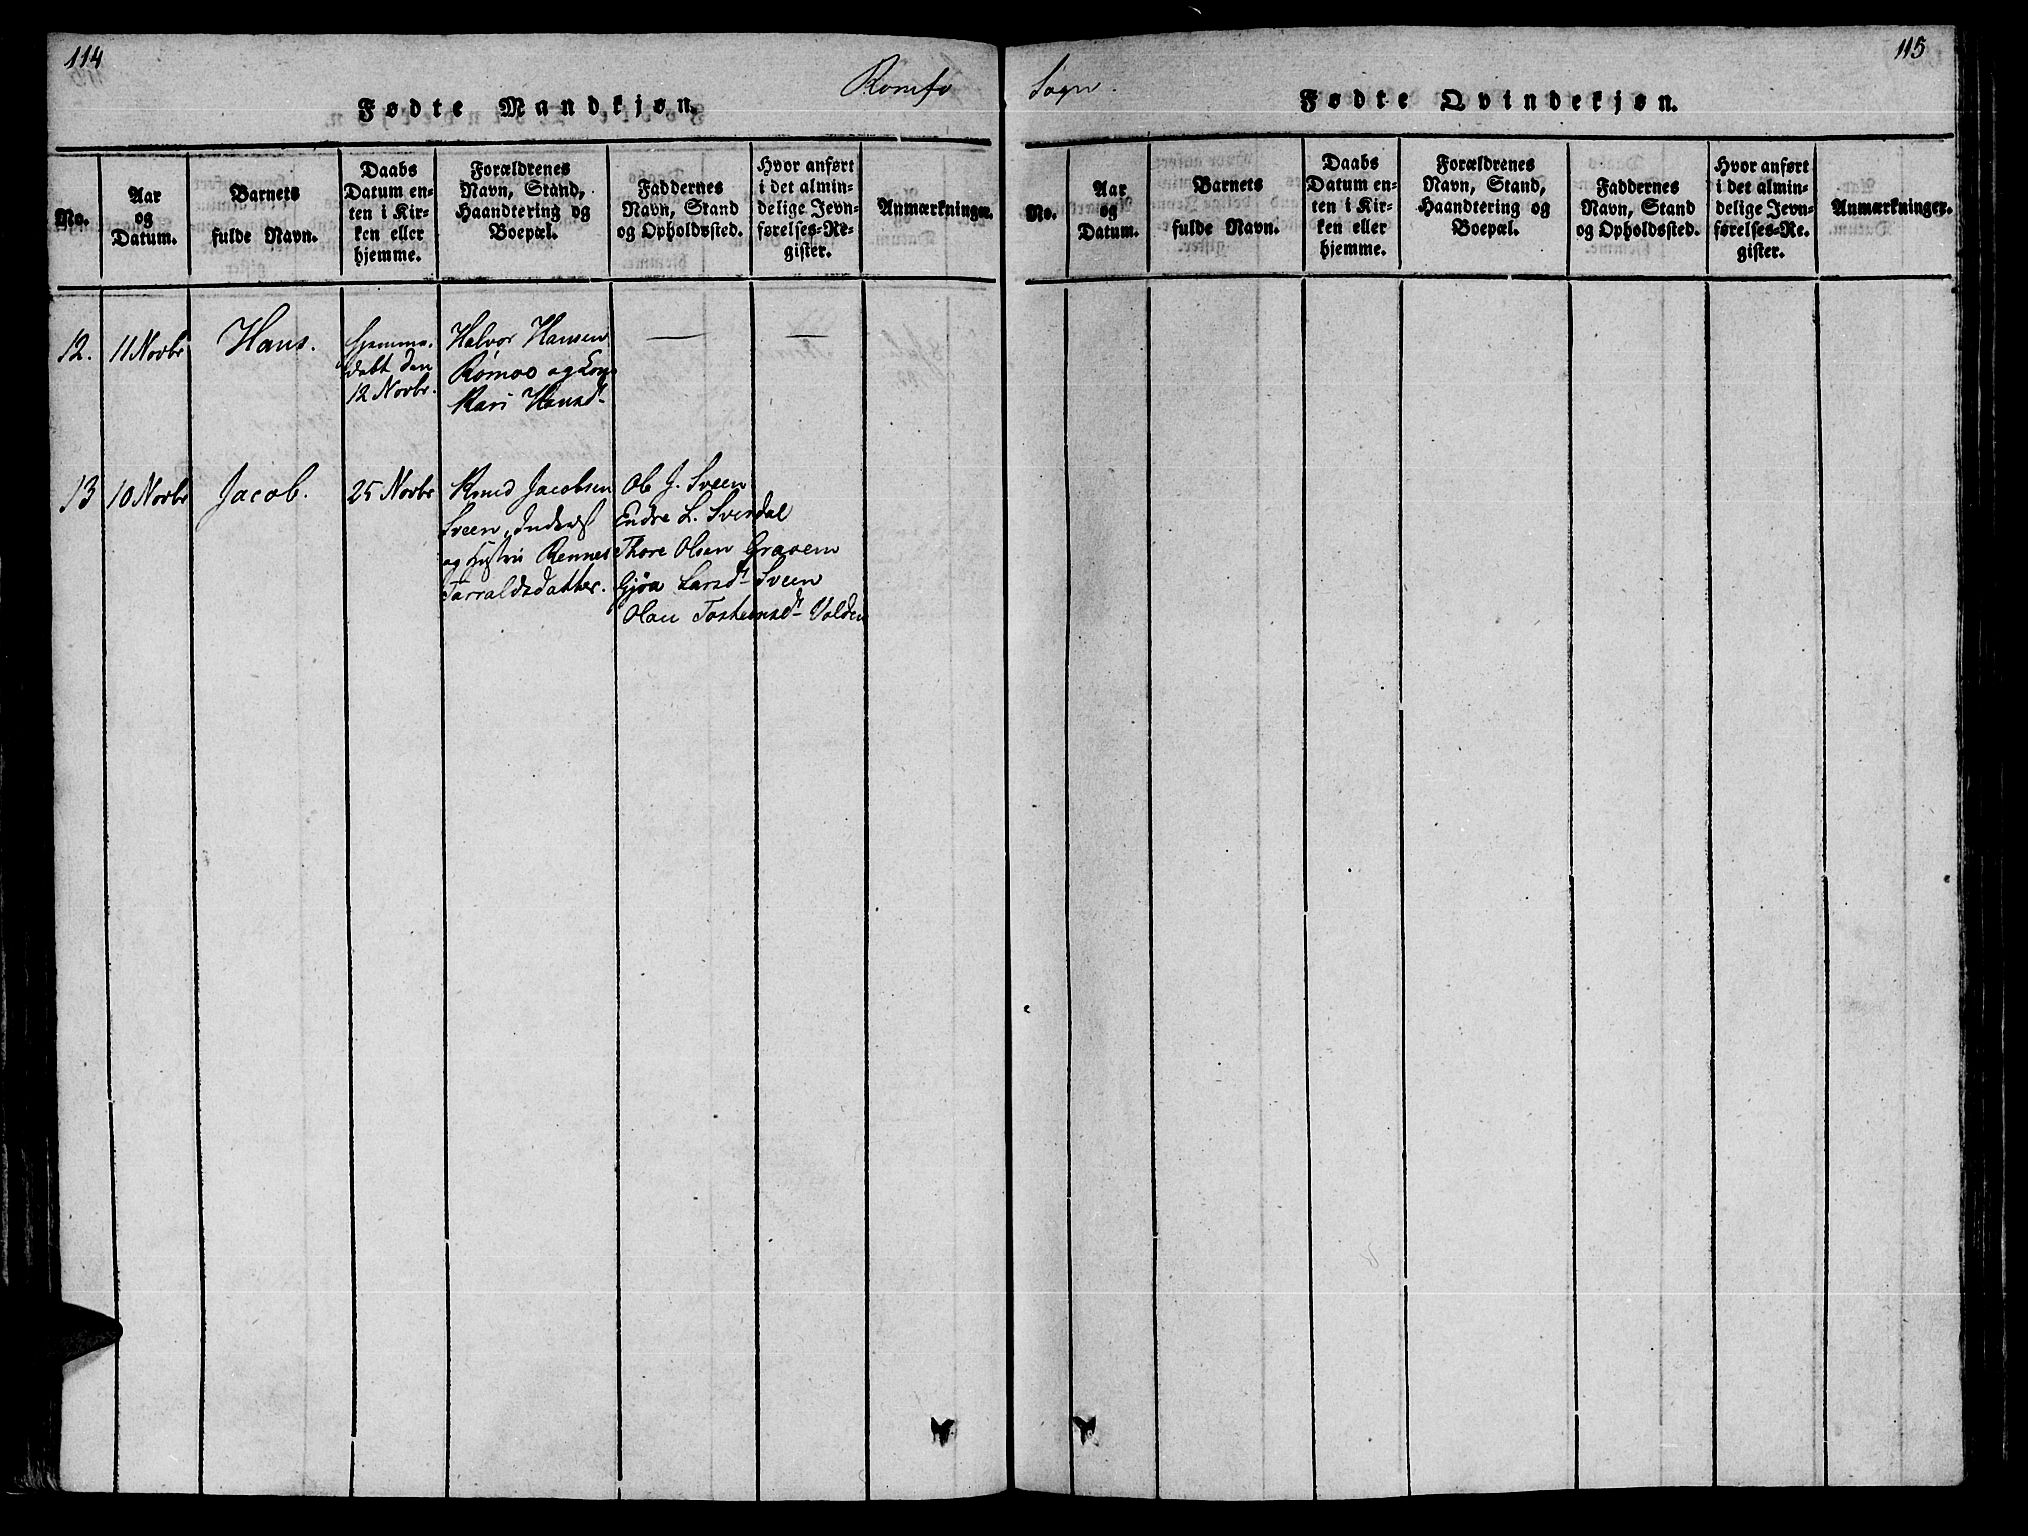 114
Romfo
Fødte Mandkjøn.
No.
Aar
og
Datum.
Barnets
fulde Navn.
Daabs
Datum en-
ten i Kir-
ken eller
hjemme.
Forældrenes
Navn, Stand,
Haandtering og
Boepæl.
Faddernes
Navn, Stand
og Opholdssted.
Hvor anført
i det almin-
delige Jevn-
førelses-Re-
gister.
Anmærkninger.
12.
11 Novbr
Hans.
hjemme.
døbt den
12 Novbr.
Halvor Hansen
Romoe og Kone
Kari Hansd.
—
—
13
10 Novbr
Jacob.
25 Novbr
Knud Jacobsen
Sveen, Inderst
og Hustru Rennes
Tarraldsdatter.
Ole J. Sveen
Endre L. Svendal
Thore Olsen Gravem
Gjøa Larsdt Sveen
Olau Tosteinsdt Volden
115
Sogn.
Fødte Qvindekjøn.
No.
Aar
og
Datum.
Barnets
fulde Navn.
Daabs
Datum en-
ten i Kir-
ken eller
hjemme.
Forældrenes
Navn, Stand,
Haandtering og
Boepæl.
Faddernes
Navn, Stand
og Opholdssted.
Hvor anført
i det almin-
delige Jevn-
førelses-Re-
gister.
Anmærkninger.